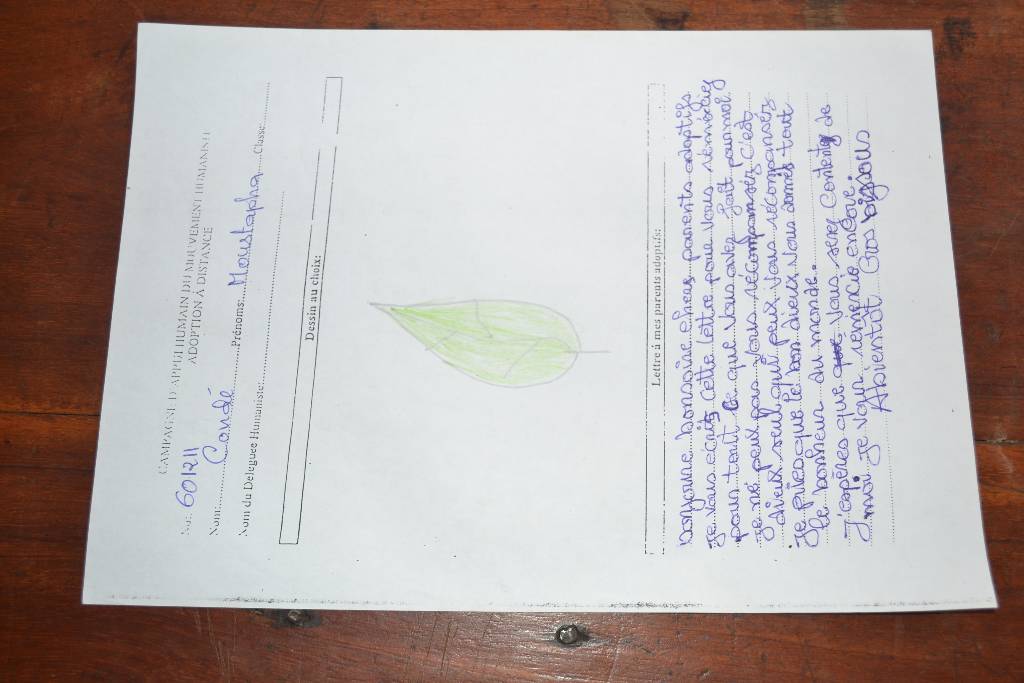 CAMPAGNE D'APPUI HUMAIN DU MOUVEMENT HUMANISTE
ADOPTION A DISTANCE
No: 601211
Nom:......Condé......Prénoms: Moustapha......Classe:......
Nom du Deleguee Humaniste:......
Dessin au choix:
Lettre à mes parents adoptifs:
bonjoure bonsoire cheus parents adoptifs
je vous ecrits cette lettre pour vous rémérciey
pour tout ce que vous avez fait pour moi.
je ne peux pas vous récompensez c'est
dieux seul qui peux vous récompensez
je pries que le bon dieux vous donnes tout
le bonheur du monde.
J'espères que vous serez contents de
moi. je vous remercie encore.
Abientôt Gros bizous